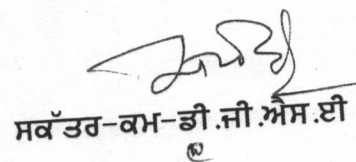 ਸਕੱਤਰ-ਕਮ-ਡੀ.ਜੀ.ਐਸ.ਈ